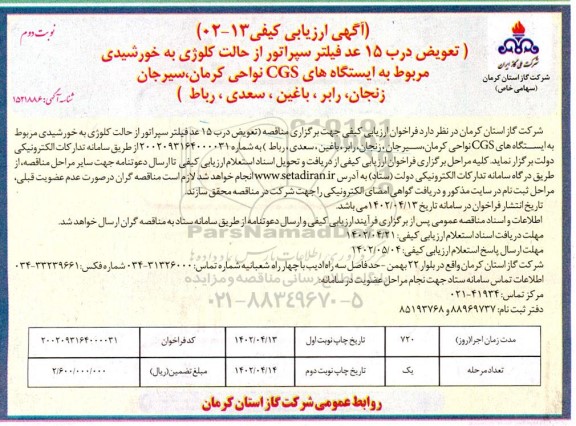 نوبت دوم
(آگهی ارزیابی کیفی ۱۳-۰۲)
( تعویض درب ۱۵ عدد فیلتر سپراتور از حالت کلوژی به خورشیدی
مربوط به ایستگاه های CGS نواحی کرمان،سیرجان
زنجان، رابر ، باغین ، سعدی ، رباط )
شرکت ملی گاز ایران
شرکت گاز استان کرمان
(سهامی خاص)
شناسه آگهی: ۱۵۲۱۸۸۶
شرکت گاز استان کرمان در نظر دارد فراخوان ارزیابی کیفی جهت برگزاری مناقصه (تعویض درب ۱۵ عدد فیلتر سپراتور از حالت کلوژی به خورشیدی مربوط
به ایستگاه های CGS نواحی کرمان،سیرجان ،زنجان،رابر،باغین ،سعدی ،رباط) به شماره ۲۰۰۲۰۹۳۱۶۴۰۰۰۰۳۱ را از طریق سامانه تدارکات الکترونیکی
دولت برگزار نماید. کلیه مراحل برگزاری فراخوان ارزیابی کیفی از دریافت و تحویل اسناد استعلام ارزیابی کیفی تا ارسال دعوتنامه جهت سایر مراحل مناقصه، از
طریق درگاه سامانه تدارکات الکترونیکی دولت (ستاد) به آدرس www.setadiran.ir انجام خواهد شد لازم است مناقصه گران در صورت عدم عضویت قبلی،
مراحل ثبت نام در سایت مذکور و دریافت گواهی امضای الکترونیکی را جهت شرکت در مناقصه محقق سازند.
تاریخ انتشار فراخوان در سامانه تاریخ ۱۴۰۲/۰۴/۱۳ می باشد.
اطلاعات و اسناد مناقصه عمومی پس از برگزاری فرآیند ارزیابی کیفی و ارسال دعوتنامه از طریق سامانه ستاد به مناقصه گران ارسال خواهد شد.
مهلت دریافت اسناد استعلام ارزیابی کیفی: ۱۴۰۲/۰۴/۲۱
مهلت ارسال پاسخ استعلام ارزیابی کیفی: ۱۴۰۲/۰۵/۰۴
شرکت گاز استان کرمان واقع در بلوار ۲۲ بهمن -حد فاصل سه راه ادیب با چهار راه شعبانیه شماره تماس: ۳۱۳۲۶۰۰۰-۰۳۴ شماره فکس: ۳۳۲۳۹۶۶۱-۰۳۴
اطلاعات تماس سامانه ستاد جهت نجام مراحل عضویت در سامانه:
مرکز تماس: ۴۱۹۳۴-۰۲۱
دفتر ثبت نام: ۸۸۹۶۹۷۳۷ و ۸۵۱۹۳۷۶۸
ParsNamadData
۰۲۱-۸۸۳۴۹۶۷۰-۵
مدت زمان اجرا(روز) ۷۲۰ تاریخ چاپ نوبت اول ۱۴۰۲/۰۴/۱۳ کد فراخوان ۲۰۰۲۰۹۳۱۶۴۰۰۰۰۳۱
تعداد مرحله یک تاریخ چاپ نوبت دوم ۱۴۰۲/۰۴/۱۴ مبلغ تضمین(ریال) ۲/۶۰۰/۰۰۰/۰۰۰
روابط عمومی شرکت گاز استان کرمان